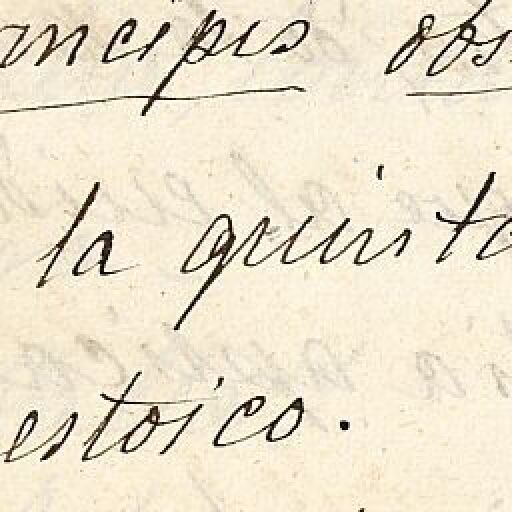 ancipis obs
la quinta
estoico.